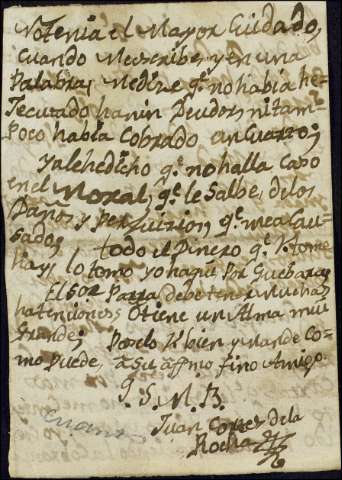 Votenia el Mayor Cuidado,
Cuando Me escribe, y en una
Palabra, Me dize q.e no habia he-
Jecutado ha nin Deudor, ni tam-
Poco habia Cobrado un Cuarto;
Ya le he dicho q.e no halla Caso
en el Moral, q.e le Salbe, de los
Daños, y Perjuirios, q.e me a Cau-
sado;
todo el Dinero q.e tome
hay, lo tomo yo haqui Por Guebara,
El Sor Parra, debe tener Muchas
hatenciones Otiene un Alma mui
Grande; Paselo Vbien y Mande Co-
mo Puede, a Su affmo fino Amigo.
q. S. M. B.
Juan Cortes de la
Rocha